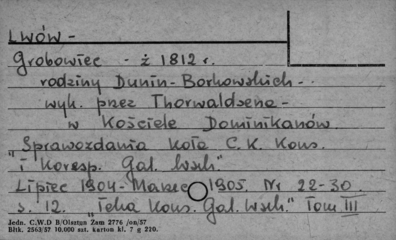 Lwów -
Grobowiec - ż 1812 r.
rodziny Dunin - Borkowskich -
wyk. przez Thorwaldsena -
w Kościele Dominikanów.
"Sprawozdania Koła C. K. Kons.
i Koresp. Gal. Wsch."
Lipiec 1904 - Marzec 1905. Nr 22-30
s. 12. "Teka Kons. Gal. Wsch." Tom III
Jedn. C.W.D B/Olsztyn Zam 2776 /on/57
Błtk. 2563/57 10.000 szt. karton kl. 7 g 220.